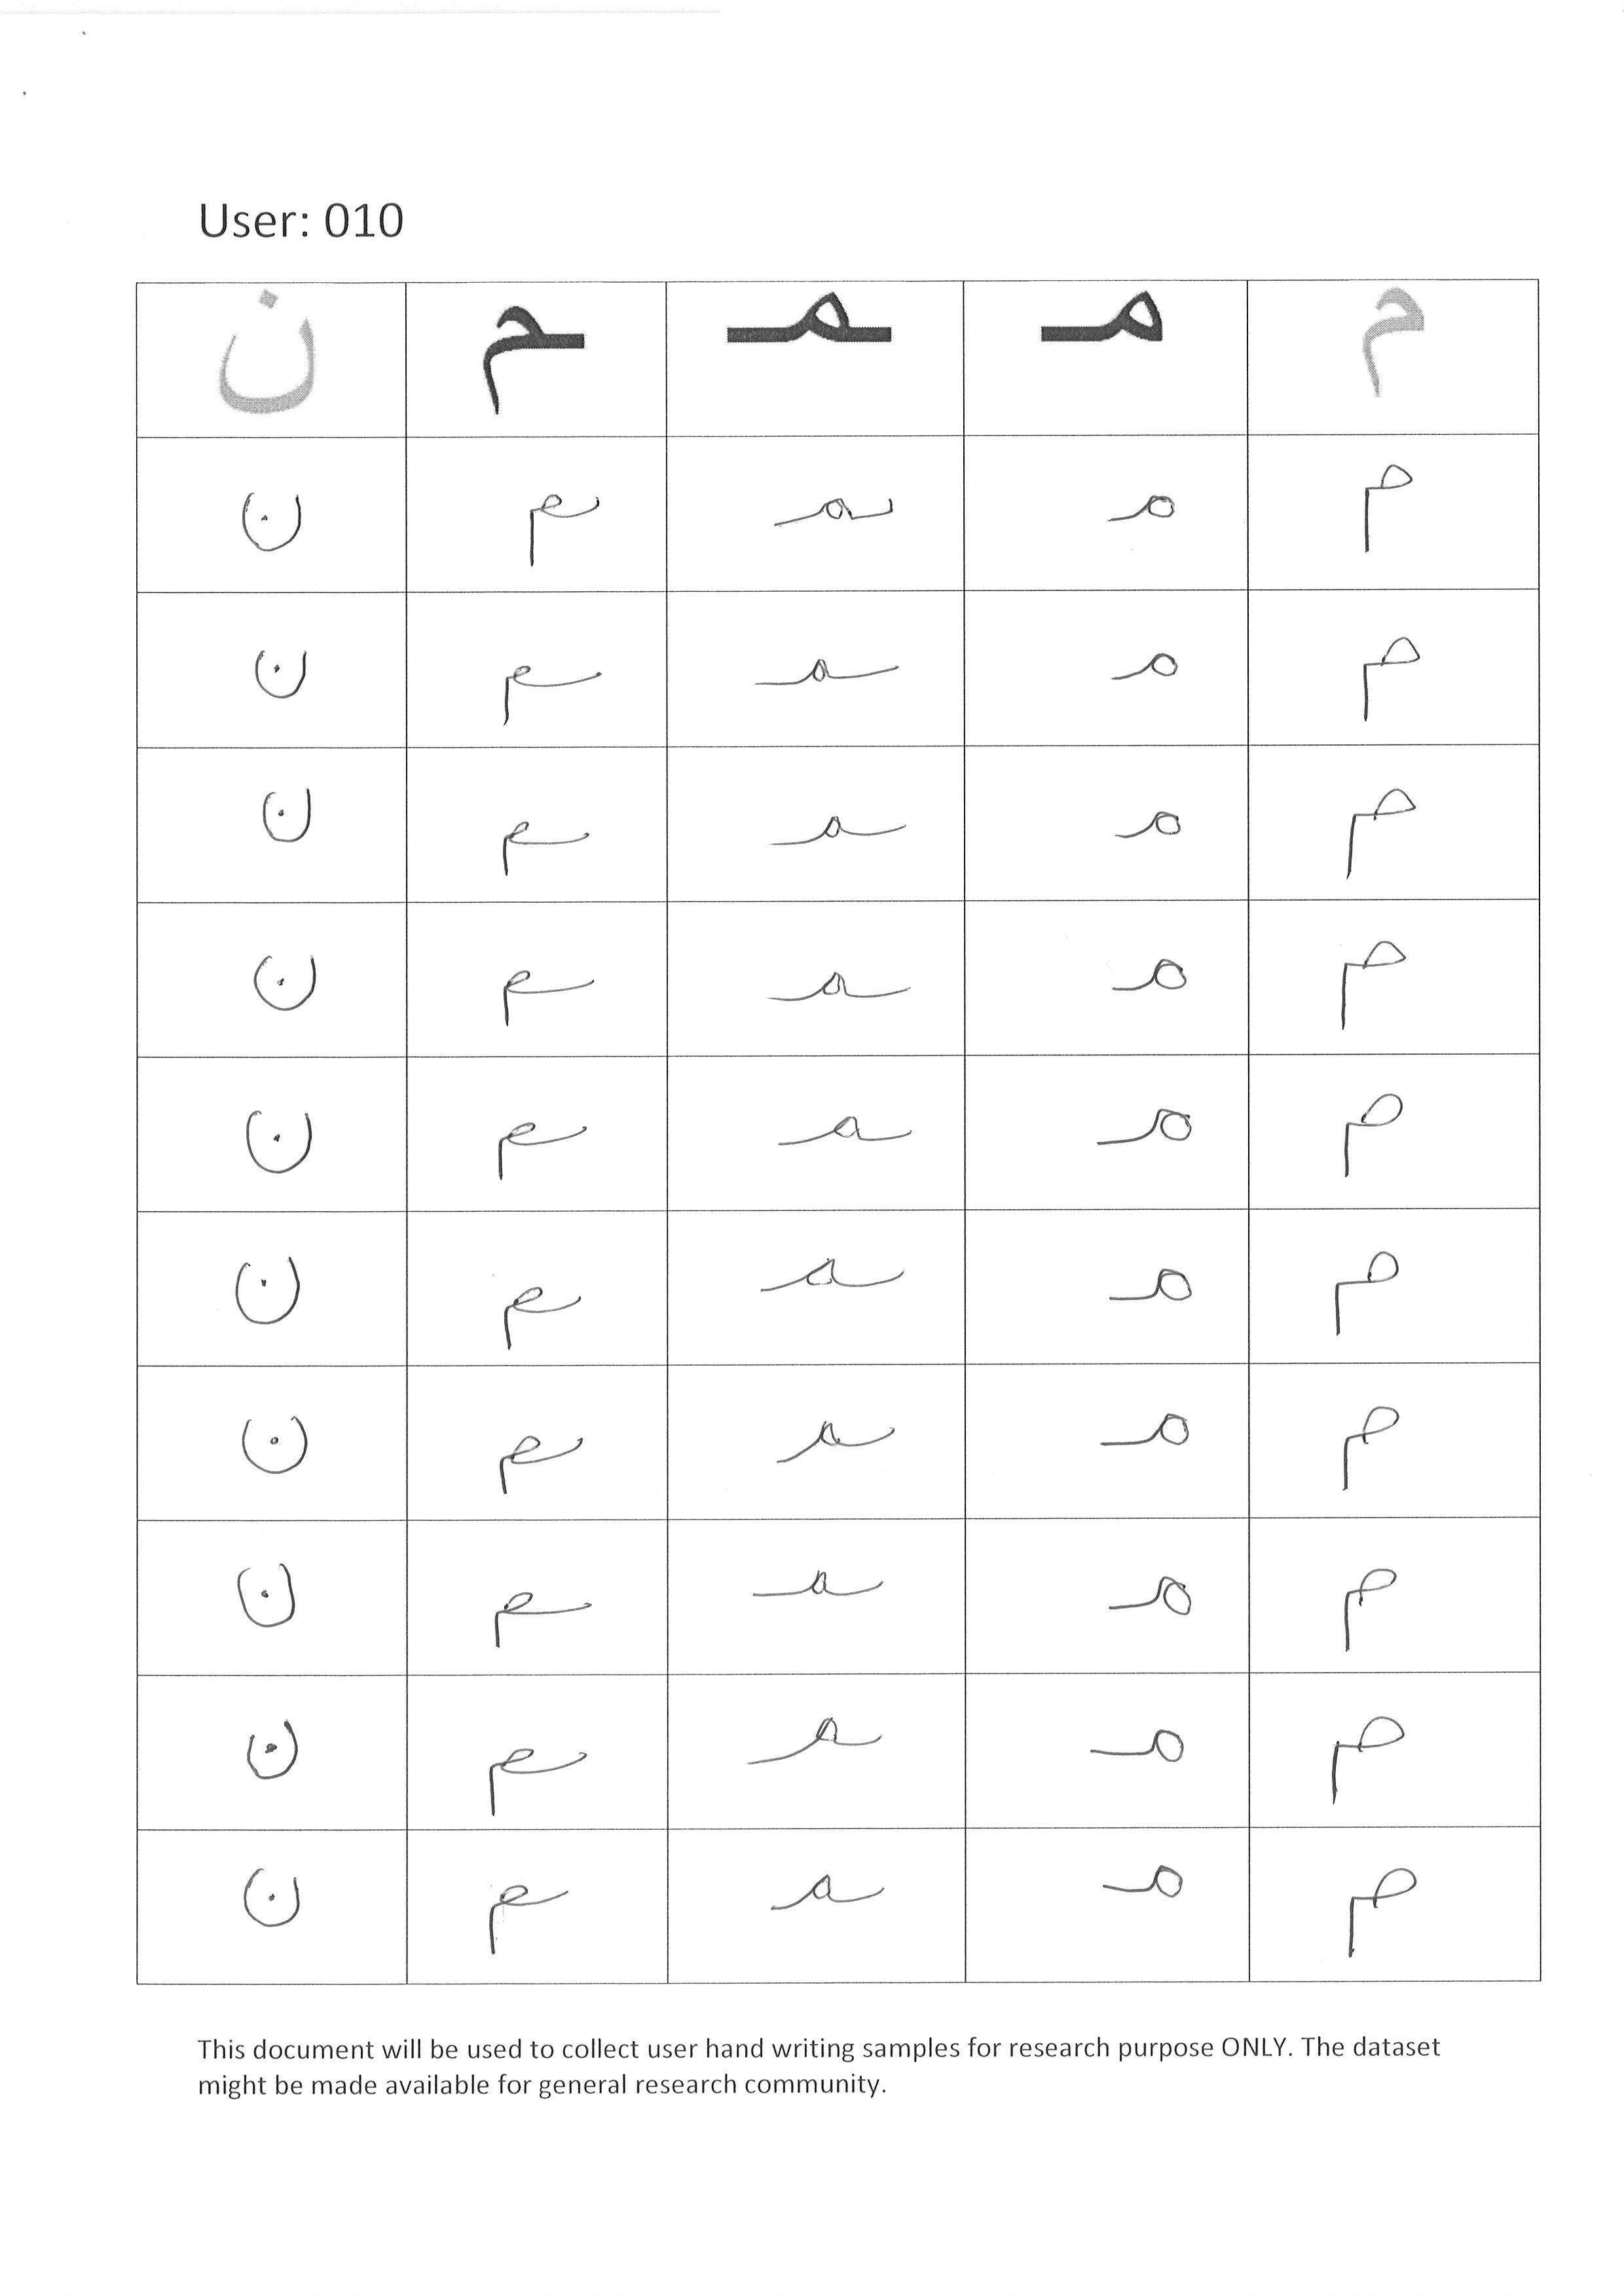 User: 010
م مـ ـمـ ـم ن
م مـ ـمـ ـم ن
م مـ ـمـ ـم ن
م مـ ـمـ ـم ن
م مـ ـمـ ـم ن
م مـ ـمـ ـم ن
م مـ ـمـ ـم ن
م مـ ـمـ ـم ن
م مـ ـمـ ـم ن
م مـ ـمـ ـم ن
م مـ ـمـ ـم ن
This document will be used to collect user hand writing samples for research purpose ONLY. The dataset
might be made available for general research community.